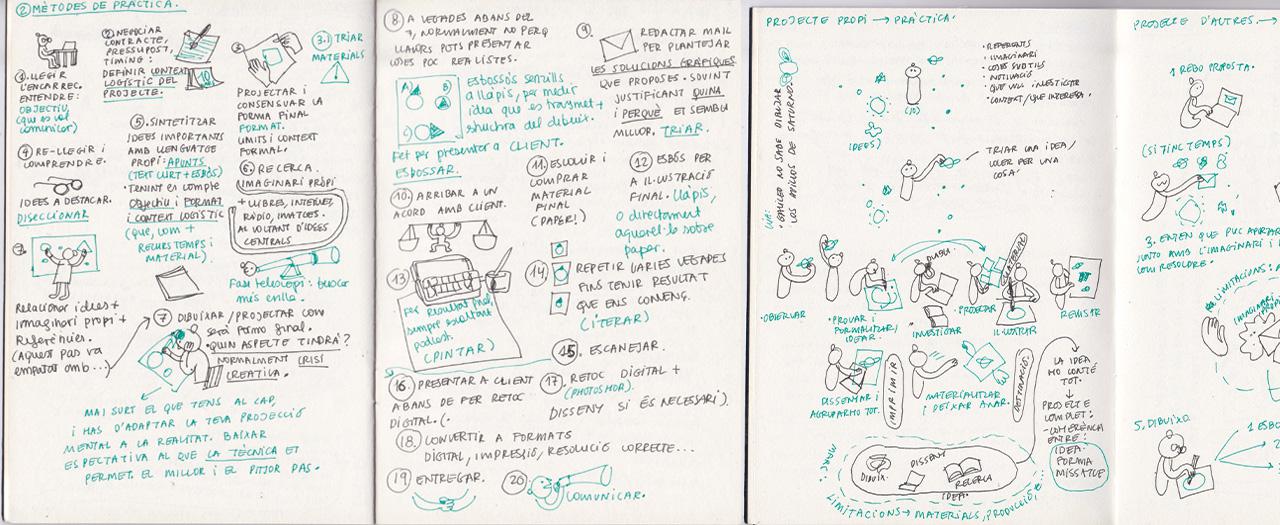 ② MÈTODES DE PRÀCTICA.
1. LLEGIR
L'ENCÀRREC.
ENTENDRE:
OBJECTIU,
(que es vol
comunicar)
② NEGOCIAR
CONTRACTE,
PRESSUPOST,
TIMING:
DEFINIR CONTEXT
LOGÍSTIC DEL
PROJECTE.
3.
PROJECTAR I
CONSENSUAR LA
FORMA FINAL
FORMAT.
LIMITS I CONTEXT
FORMAL.
3.1) TRIAR
MATERIALS
④ RE-LLEGIR I
COMPRENDRE.
IDEES A DESTACAR.
DISECCIONAR
⑤. SINTETITZAR
IDEES IMPORTANTS
AMB LLENGUATGE
PROPI: APUNTS
(TEXT CURT + ESBÓS)
· TENINT EN COMPTE
OBJECTIU I FORMAT
I CONTEXT LOGÍSTIC
(que, com +
RECURS TEMPS I
MATERIAL)
⑥. RECERCA.
IMAGINARI PROPI
+ LLIBRES, INTERNET,
RÀDIO, IMATGES.
AL VOLTANT D'IDEES
CENTRALS
Fase telescopi: buscar
més enllà.
Relacionar idees +
Imaginari propi +
Referències.
(Aquest pas va
empatat amb...)
⑦ DIBUIXAR/PROJECTAR COM
serà forma final.
· QUIN ASPECTE TINDRÀ?
NORMALMENT CRISI
CREATIVA.
MAI SURT EL QUE TENS AL CAP,
I HAS D'ADAPTAR LA TEVA PROJECCIÓ
MENTAL A LA REALITAT. BAIXAR
ESPECTATIVA AL QUE LA TÈCNICA ET
PERMET. EL MILLOR I EL PITJOR PAS.
⑧. A VEGADES ABANS DEL
7, NORMALMENT NO PERQ
LLAVORS POTS PRESENTAR
COSES POC REALISTES.
A B C
ESBOSSOS senzills
a llàpis, per medir
idea que es transmet +
structura del dibuix.
Fet per presentar a CLIENT.
ESBOSSAR.
⑨.
REDACTAR MAIL
PER PLANTEJAR
LES SOLUCIONS GRÀFIQUES
QUE PROPOSES. SOVINT
JUSTIFICANT QUINA
I PERQUÈ ET SEMBLA
MILLOR. TRIAR.
⑩. ARRIBAR A UN
ACORD AMB CLIENT.
⑪. ESCOLLIR I
COMPRAR
MATERIAL
FINAL
(PAPER!)
⑫ ESBÓS PER
A IL·LUSTRACIÓ
FINAL. Llàpis,
o directament
aquarel·la sobre
paper.
⑬
Per resultat final,
sempre escoltant
podcast.
(PINTAR)
⑭
REPETIR VARIES VEGADES
FINS TENIR RESULTAT
QUE ENS CONVENÇ.
(ITERAR)
⑮. ESCANEJAR.
⑯. PRESENTAR A CLIENT
ABANS DE FER RETOC
DIGITAL. (.
⑰. RETOC DIGITAL +
(PHOTOSHOP).
DISSENY SI ÉS NECESSARI).
⑱. CONVERTIR A FORMATS
DIGITAL, IMPRESSIÓ, RESOLUCIÓ CORRECTE...
⑲ ENTREGAR.
⑳
COMUNICAR.
PROJECTE PROPI → PRÀCTICA.
· REFERENTS
· IMAGINARI
· COSES SUBTILS
· MOTIVACIÓ
· QUE VULL INVESTIGAR
· CONTEXT/QUE INTERESSA.
(JO)
(IDEES)
TRIAR UNA IDEA/
VOLER FER UNA
COSA!
· EMILEO NO SABE DIBUJAR
LOS ANILLOS DE SATURNO.
· OBSERVAR
· PROVAR I
FORMALITZAR/
IDEAR.
INVESTIGAR
PROJECTAR
IL·LUSTRAR
REVISAR
DISSENYAR I
AGRUPAR-HO TOT.
IMPRIMIR
MATERIALITZAR
I DEIXAR ANAR.
LA IDEA
HO CONTÉ
TOT.
PROJECTE
COMPLET:
- COHERÈNCIA
ENTRE:
IDEA-
FORMA
MISSATGE
MARC
DIBUIX.
DISSENY
RECERCA
IDEA.
LIMITACIONS → MATERIALS, PRODUCCIÓ,
PROJECTE D'ALTRES. →
1 REBO PROPOSTA.
(SI TINC TEMPS)
3. ENTEN QUE PUC APORTAR
JUNTO AMB L'IMAGINARI I
COM RESOLDRE.
LIMITACIONS:
5. DIBUIXO